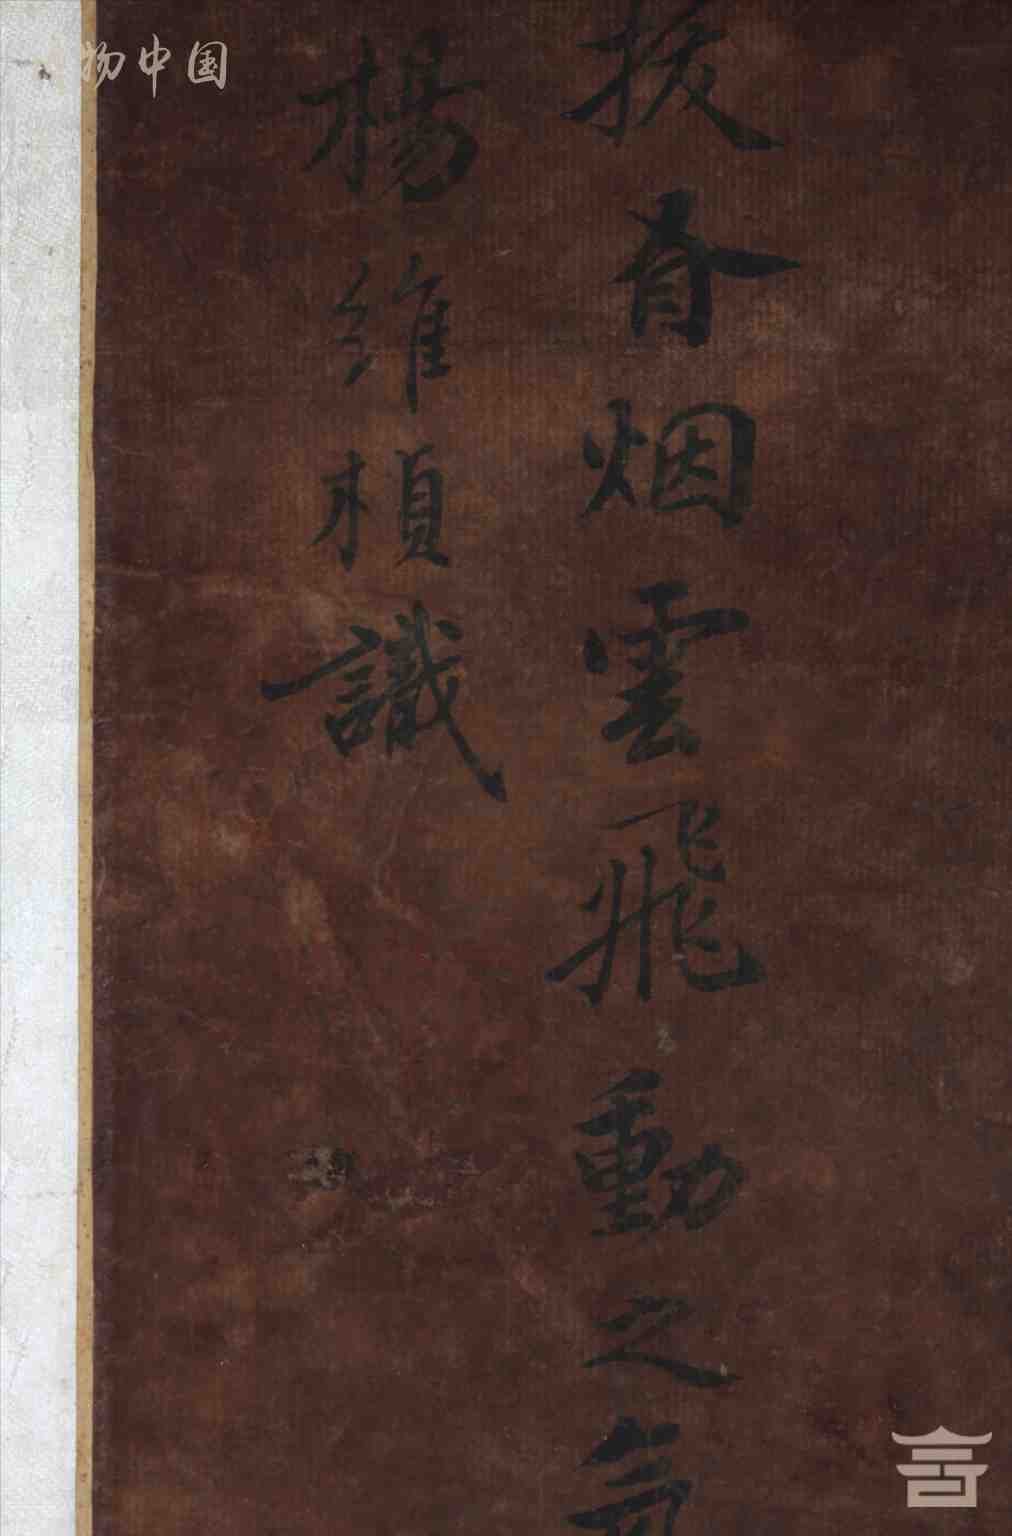 拔有烟雲飛動之氣
楊維楨識
物中国